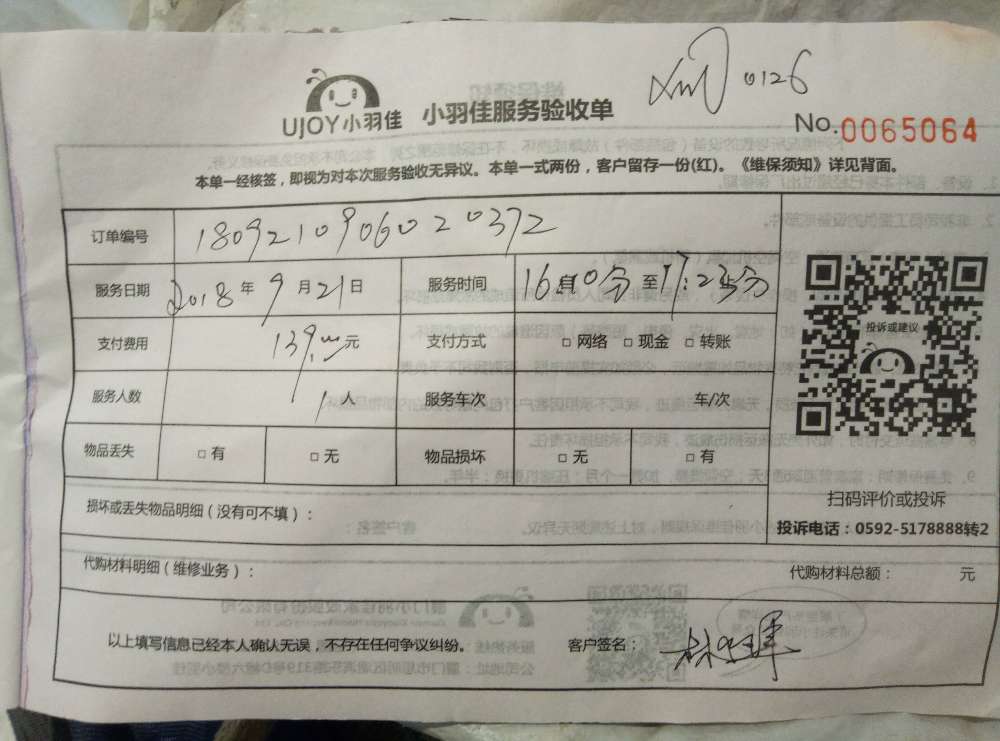 0126
UJOY小羽佳 小羽佳服务验收单
No.0065064
本单一经核签，即视为对本次服务验收无异议。本单一式两份，客户留存一份(红)。《维保须知》详见背面。
订单编号 180921090602 0372
服务日期 2018年9月21日 服务时间 16 10分至17:23分
支付费用 139.00元 支付方式 □网络 □现金 □转账
投诉或建议
服务人数 1人 服务车次 车/次
物品丢失 □有 □无 物品损坏 □无 □有
扫码评价或投诉
损坏或丢失物品明细（没有可不填）：
投诉电话：0592-5178888转2
代购材料明细（维修业务）： 代购材料总额： 元
以上填写信息已经本人确认无误，不存在任何争议纠纷。 客户签名：